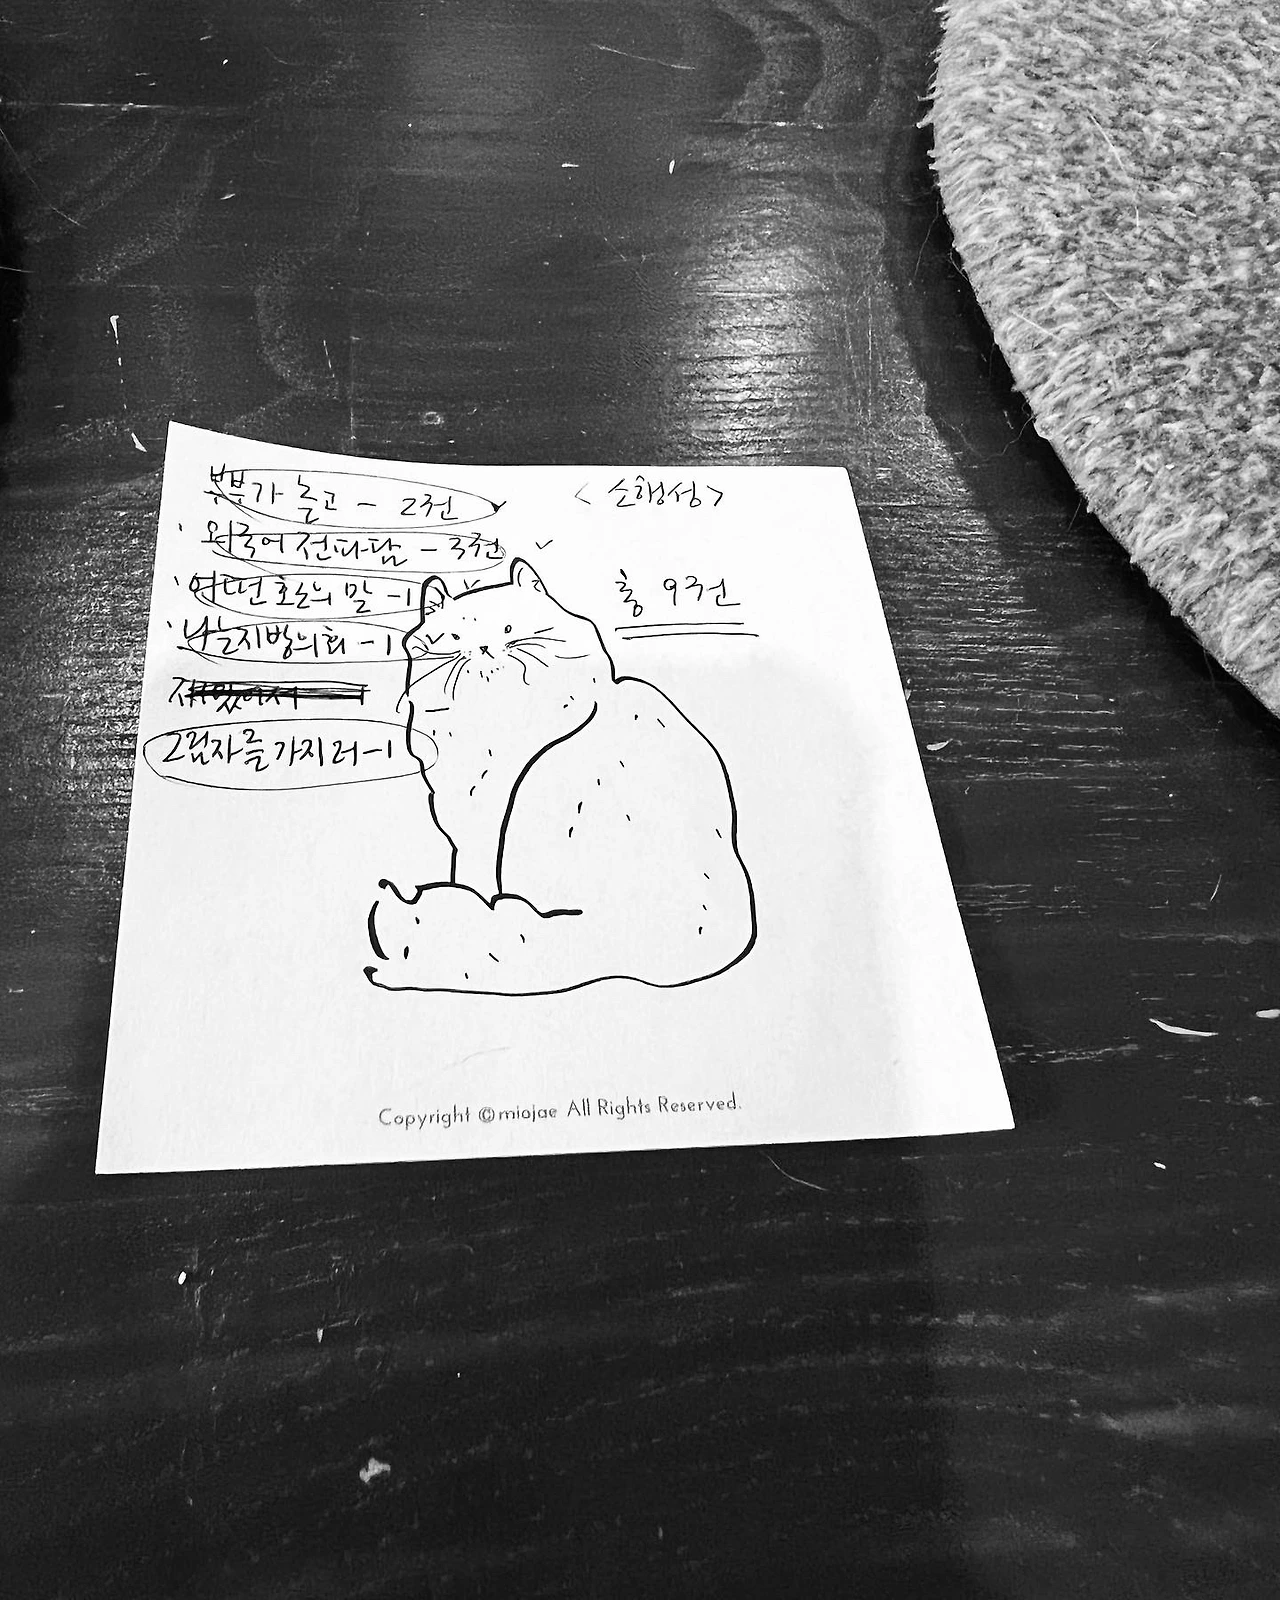 뿔가 놓고 - 2권
<소행성>
· 외국어 전파담 - 3권
· 어떤 호소의 말 - 1
총 9권
· 나는 지방의회 - 1
그림자를 가지러 - 1
Copyright ©miojae All Rights Reserved.